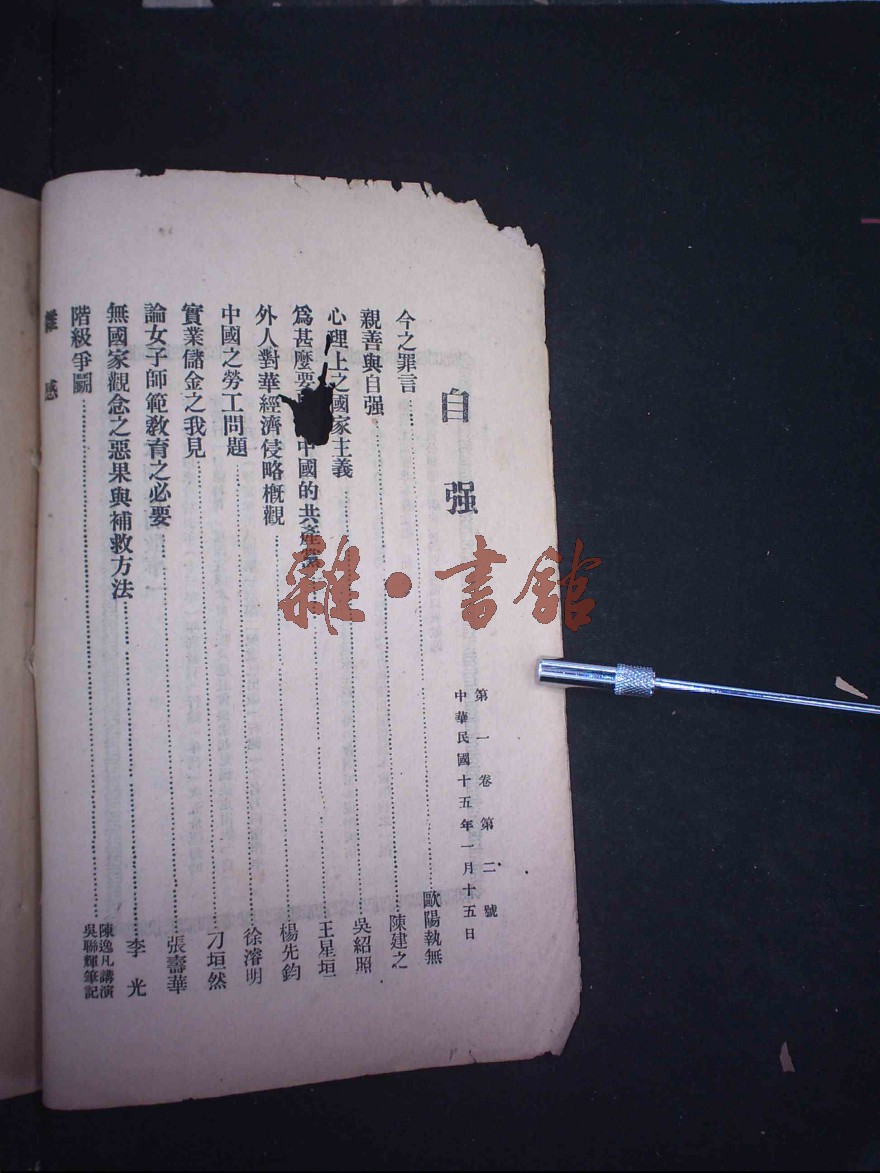 自强
第一卷第二號
中華民國十五年一月十五日
今之罪言……歐陽執無
親善與自强……陳建之
心理上之國家主義……吳紹照
爲甚麼要 中國的共產黨……王星垣
外人對華經濟侵略概觀……楊先鈞
中國之勞工問題……徐濬明
實業儲金之我見……刁垣然
論女子師範教育之必要……張壽華
無國家觀念之惡果與補救方法……李光
階級爭鬭……陳逸凡講演 吳聯輝筆記
雜感
雜·書館